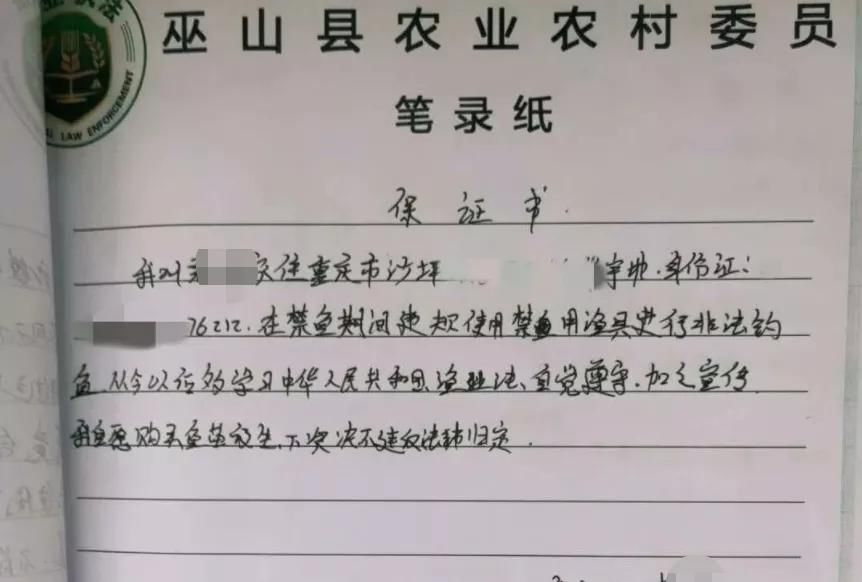 执法
LAW ENFORCEMENT
巫山县农业农村委员
笔录纸
保证书
我叫 住重庆市沙坪 身份证:
76212.在禁鱼期间违规使用禁用渔具进行非法钓
鱼,从今以后好学习中华人民共和国渔业法、自觉遵守.加之宣传
我自愿购买鱼苗放生,下次决不违反法律归定.